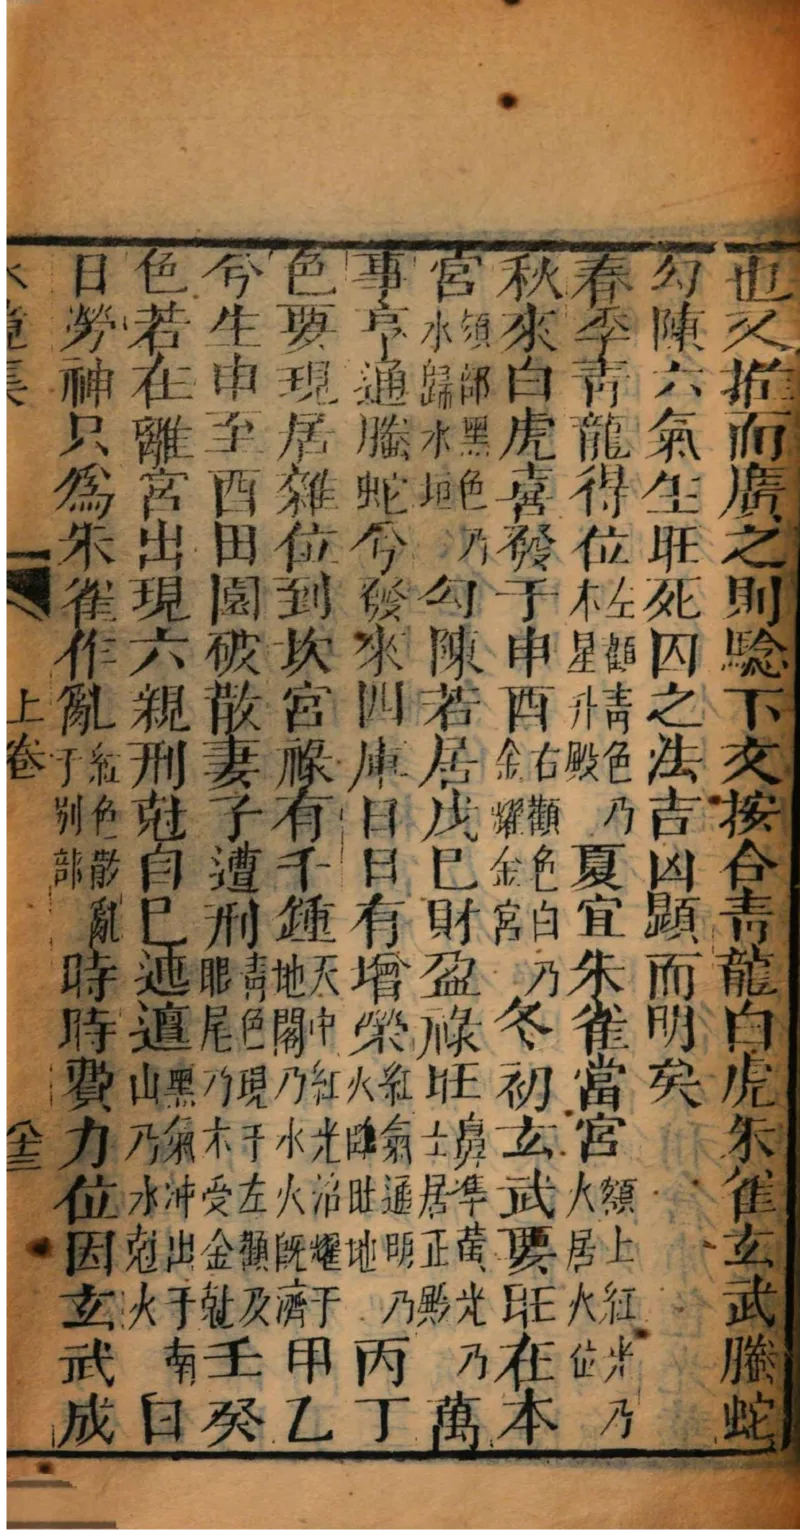 也又推而廣之則驗下文按合青龍白虎朱雀玄武螣蛇
勾陳六氣生旺死囚之法吉凶顯而明矣
春季青龍得位左顴青色乃木星升殿夏宜朱雀當宮額上紅光乃火居火位
秋來白虎喜發于申酉右顴色白乃金耀金宮冬初玄武要旺在本
宮頦部黑色乃水歸水垣勾陳若居戊巳財盈祿旺鼻準黃光乃土居正殿萬
事亨通螣蛇兮發來四庫日日有增榮紅氣通明乃火降旺地丙丁
色要現居雜位到坎宮祿有千鍾天中紅光沿耀于地閣乃水火既濟甲乙
兮生申至酉田園破散妻子遭刑青色現于左顴及眼尾乃木受金尅壬癸
色若在離宮出現六親刑尅自巳迍邅黑氣冲出于南山乃水尅火日
日勞神只為朱雀作亂紅色散亂于别部時時費力位因玄武成
水鏡集
上卷